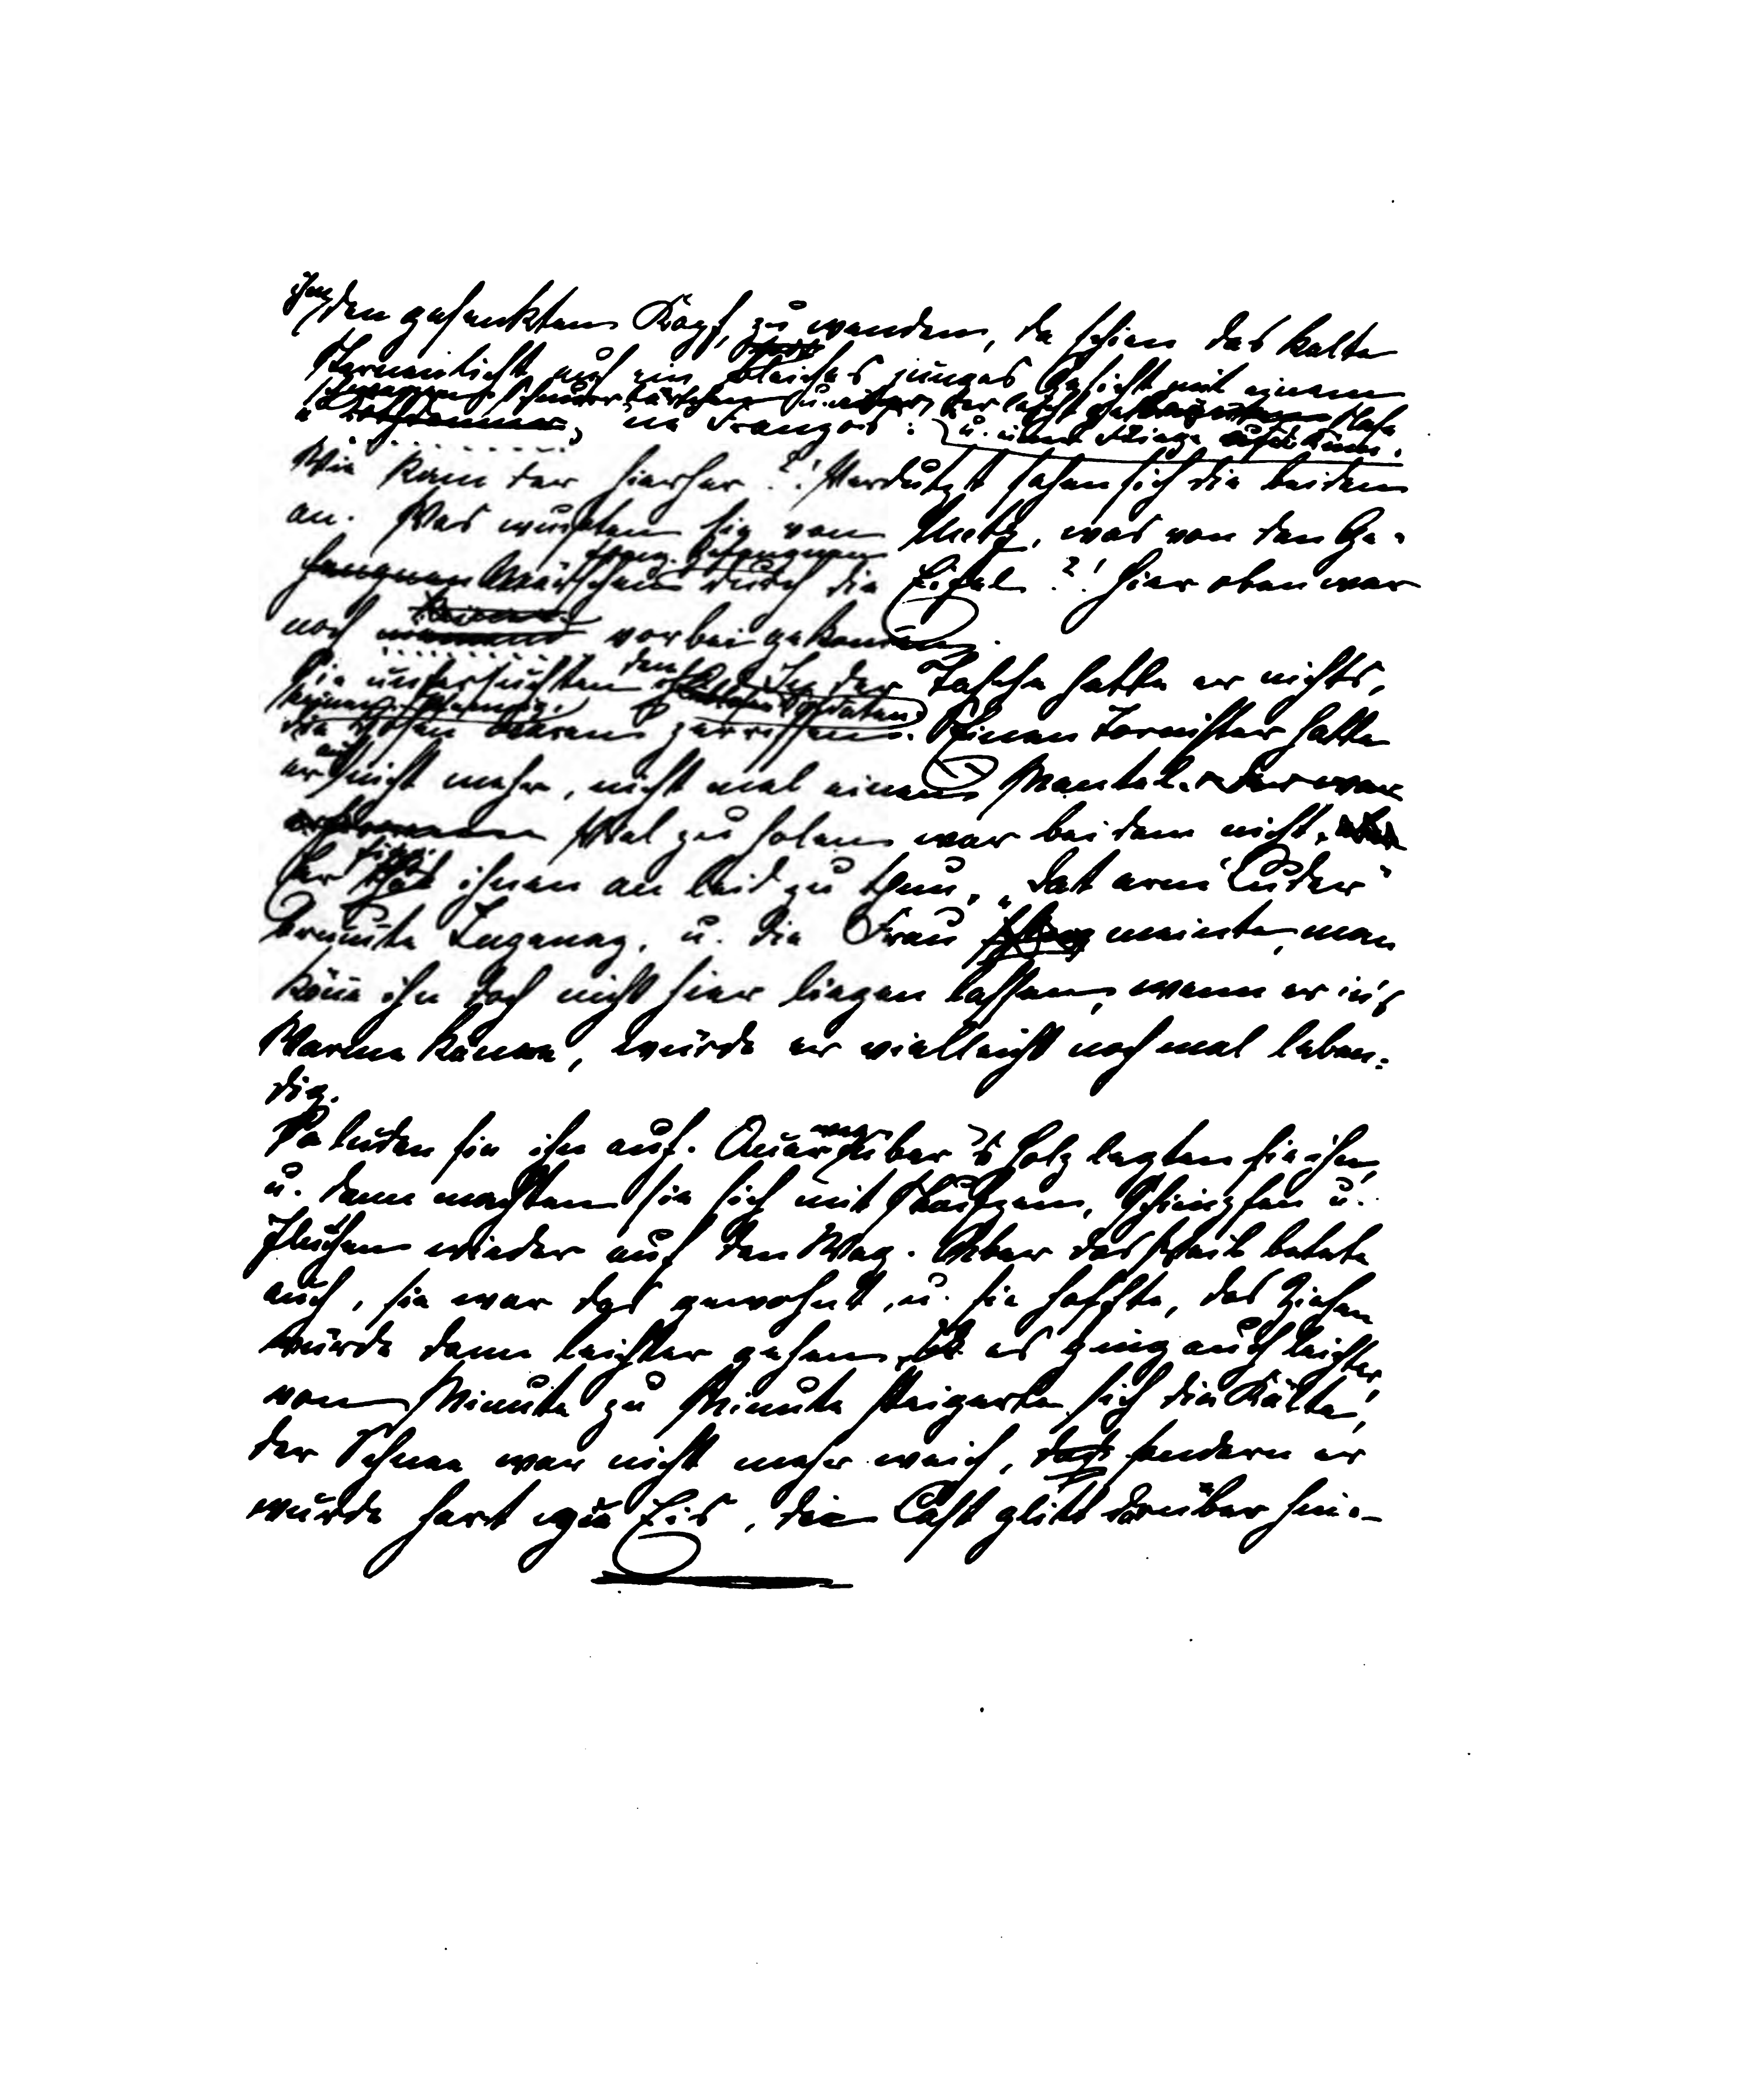 ihm
den gesenkten Kopf zu wenden, da schien das kalte
Sternenlicht auf ein bleiches junges Gesicht mit einem
schwarzen Schnurrbärtchen u. einer
ne Franzos: u. einer
Wie kam der hierher?! Verdutzt sahen sich die beiden
an. Was wußten sie von Metz, was von den Ge-
franz. Gefangnen
fangnen Märschen durch die Eifel?! Hier oben war
noch keiner vorbei gekommen.
Sie untersuchten den In der Tasche hatte er nichts,
keinen Pfennig. Soldaten.
die zerrissen. Einen Tornister hatte
auch
er nicht mehr, nicht mal einen Mantel. Der war
erfroren Viel zu holen war bei dem nicht.
Der fing ihnen an leid zu thun. „Dat arm' Luder"
brummte u. die Frau meinte, man
könne ihn doch nicht hier liegen lassen, wenn er in's
Warme käme, würde er vielleicht noch mal leben-
dig.
So luden sie ihn auf. Quer über's Holz legten sie ihn,
u. dann machten sie sich mit Seufzen, Schimpfen u.
Fluchen wieder auf den Weg. Aber das Weib betete
auch, sie war das gewohnt, u. sie hoffte, das Ziehen
würde dann leichter gehen. es ging auch leichter,
von Minute zu Minute steigerte sich die Kälte,
der Schnee war nicht mehr weich, sondern er
wurde hart wie Eis, die Last glitt darüber hin.